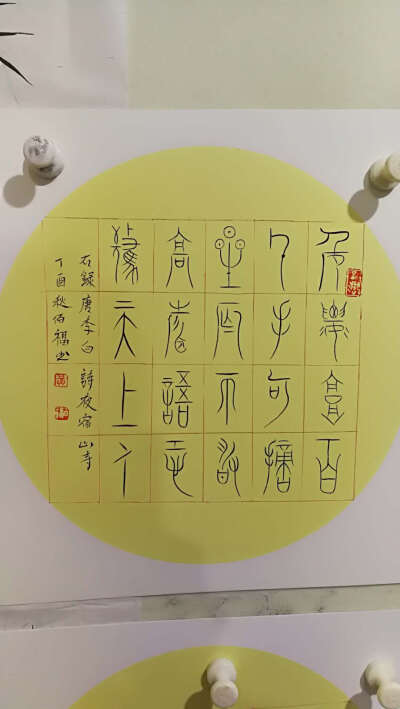 危樓高百
尺手可摘
星辰不敢
高聲語恐
驚天上人
右錄唐李白詩夜宿山寺
丁酉秋佰福書